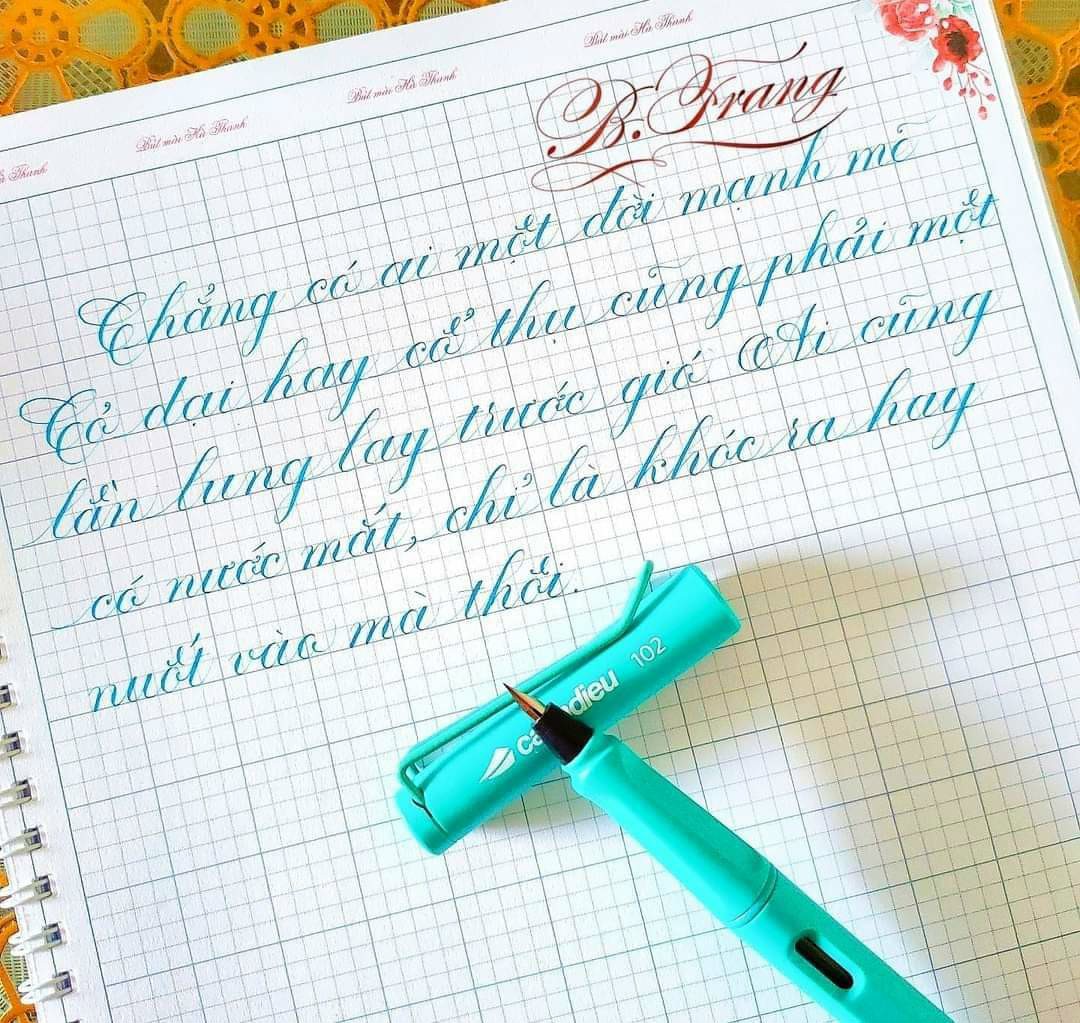 Bút mài Hà Thanh
Bút mài Hà Thanh
Bút mài Hà Thanh
Hà Thanh
B. Trang
Chẳng có ai một đời mạnh mẽ
Cỏ dại hay cổ thụ cũng phải một
lần lung lay trước gió. Ai cũng
có nước mắt, chỉ là khóc ra hay
nuốt vào mà thôi.
102